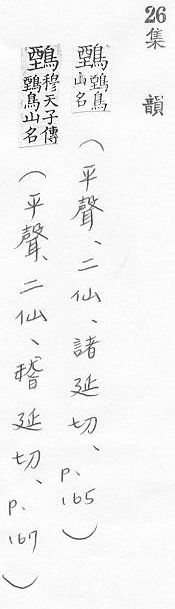 26 集韻
𪃋𪃋鳥山名(平聲、二仙、諸延切、p.165)
𪃋穆天子傳𪃋鳥山名(平聲、二仙、稽延切、p.167)